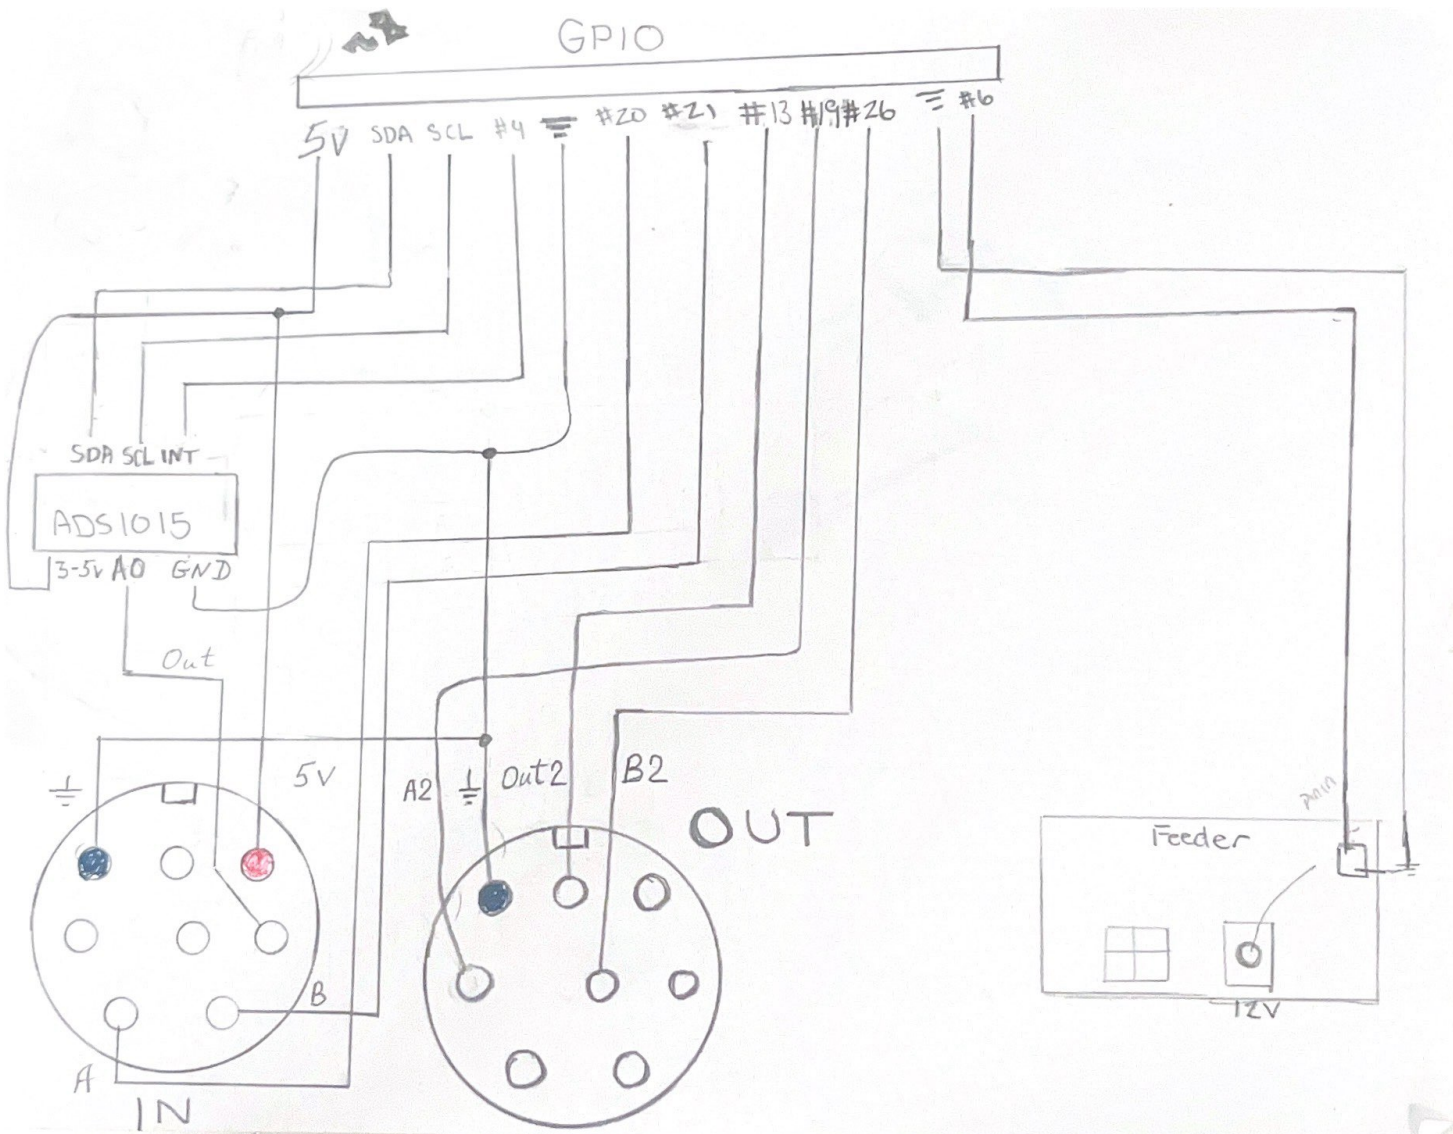 GPIO
5V SDA SCL #4 #20 #21 #13 #19 #26 #6
SDA SCL INT
ADS1015
3-5v A0 GND
Out
5V
A2 Out2 B2
OUT
Feeder
B
12V
A
IN